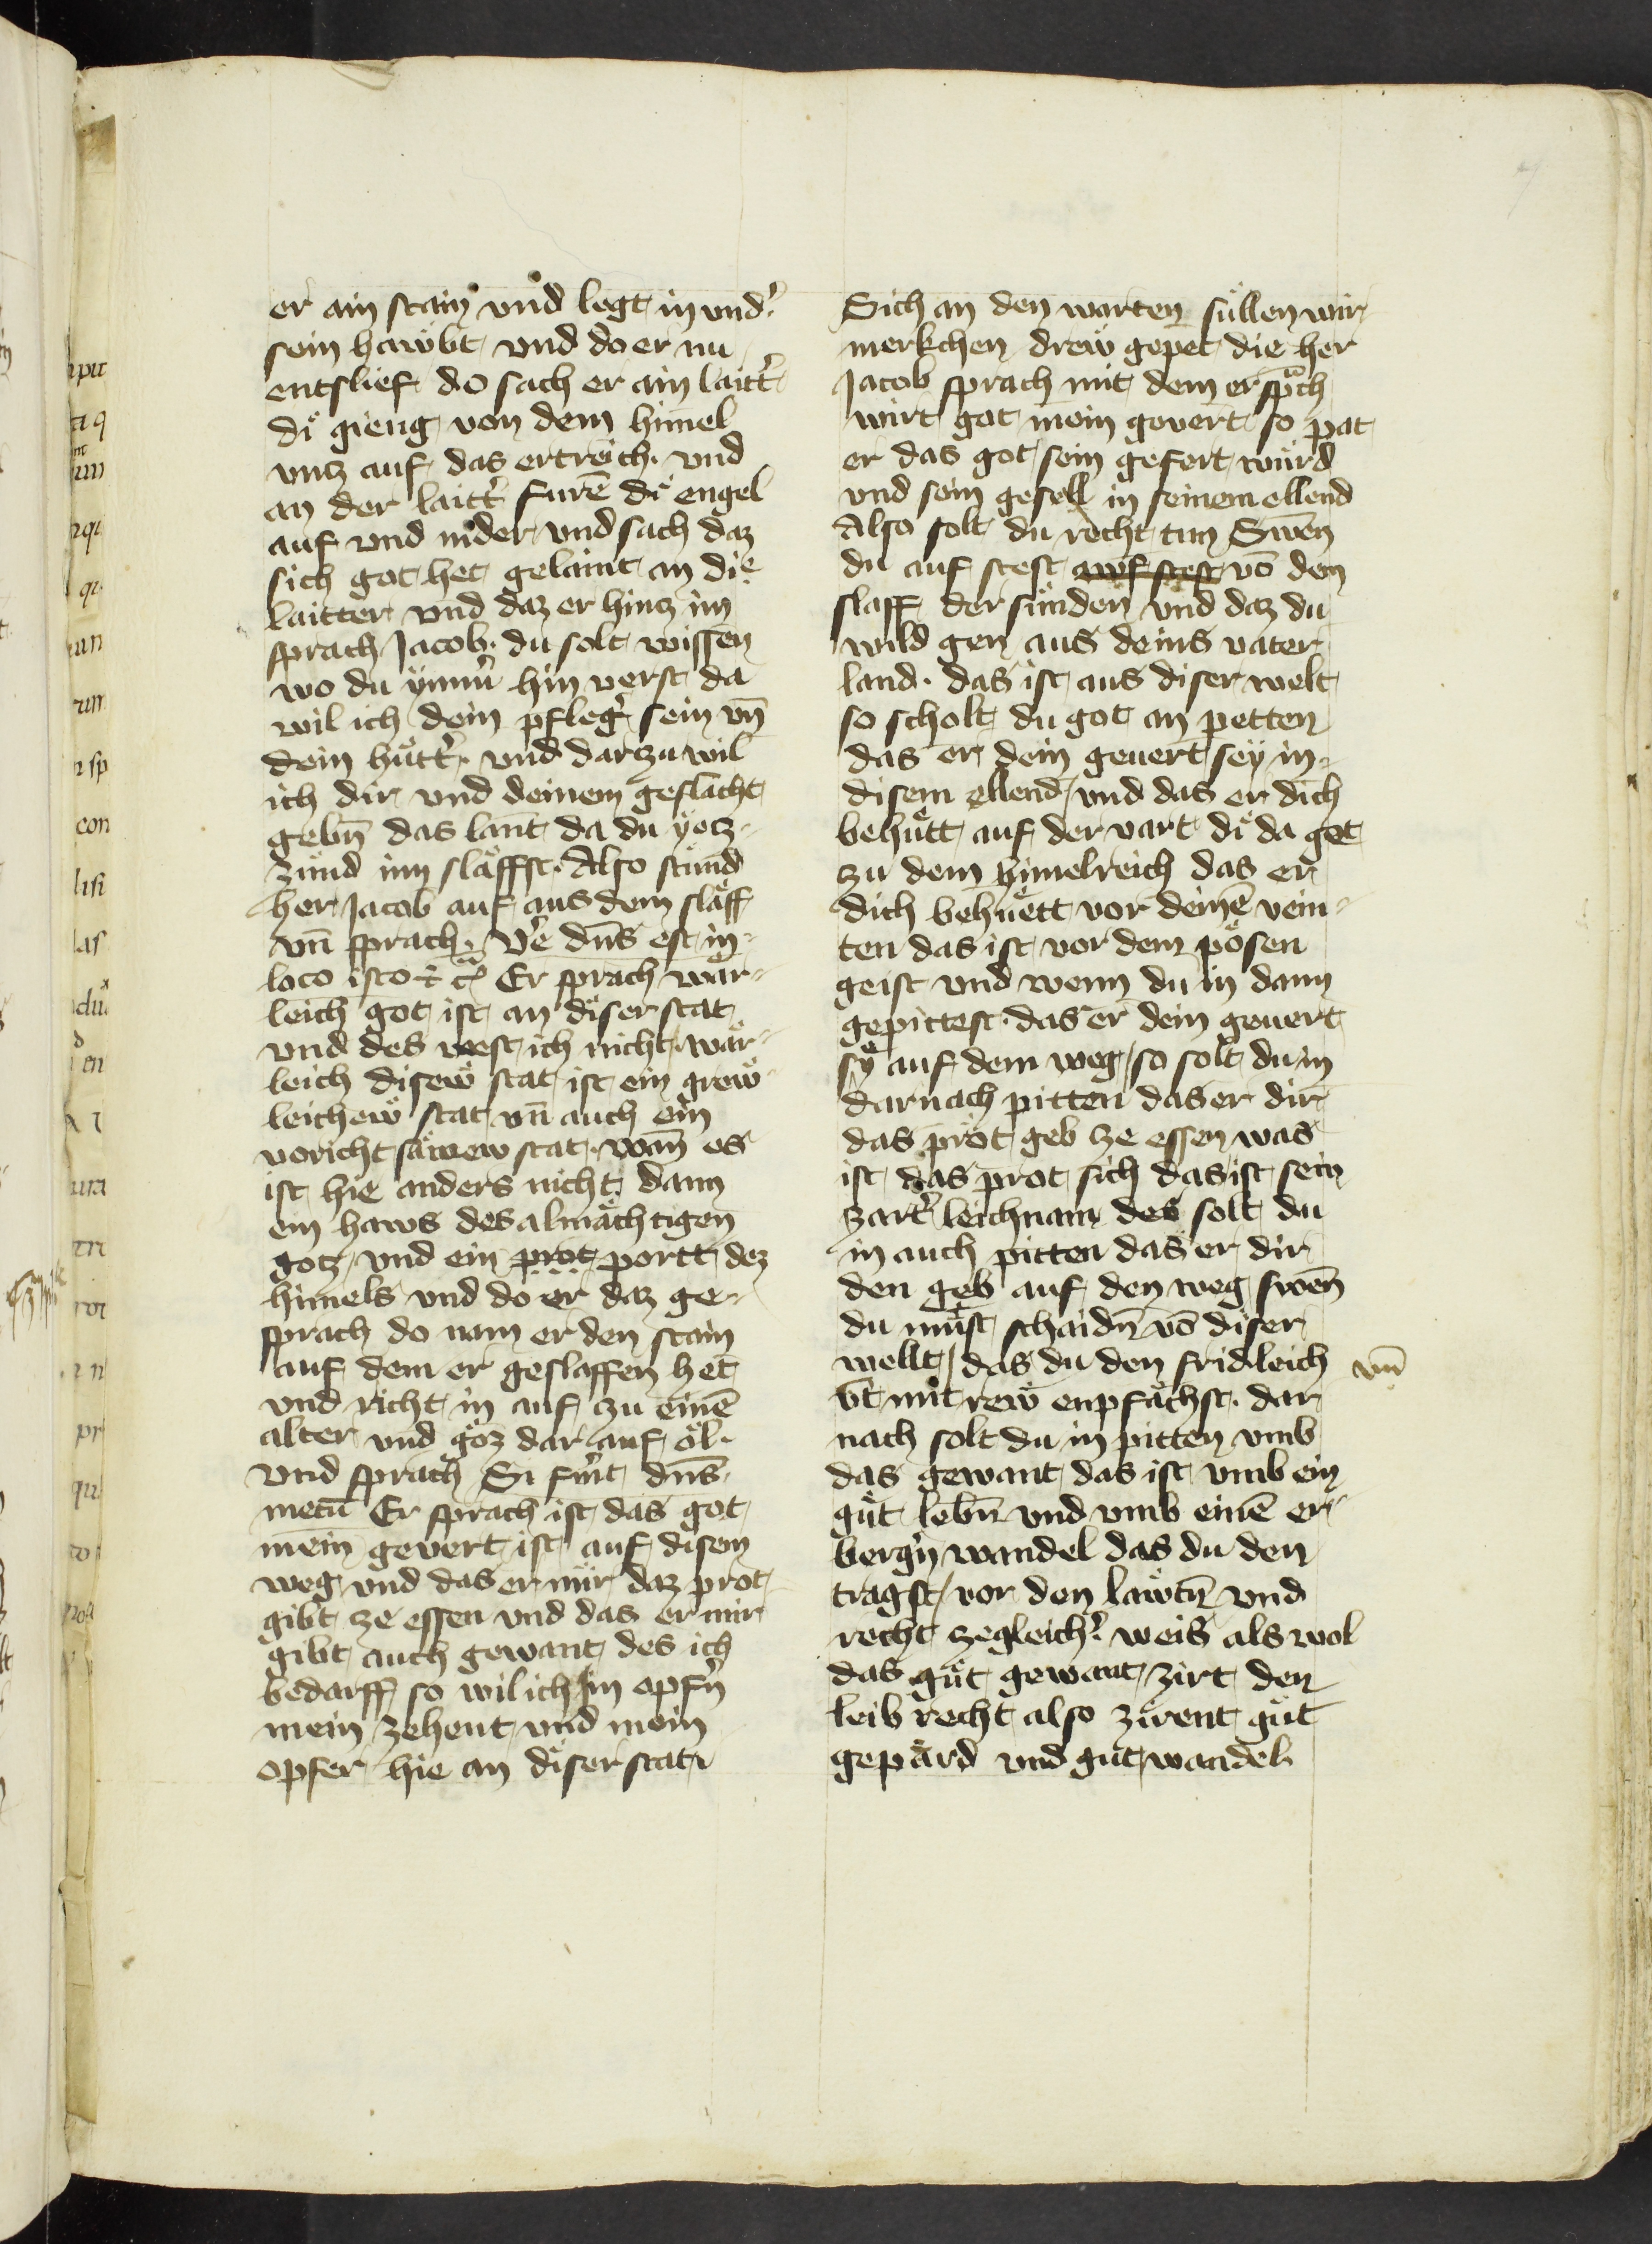 er ain stain vnd legt in vnd'
sein haẅbt vnd do er nu
entslief do sach er ain laitt'
di gieng von dem himel
vntz auf das ertreich. vnd
an der laitt' furē di engel
auf vnd nider vnd sach daz
sich got het gelaint an die
laitter vnd daz er hintz im
sprach Jacob. du solt wissen
wo du ymm' hin verst da
wil ich dein pfleg' sein vn̄
dein hütt'. vnd dar zu wil
ich dir vnd deinem geslächt
gebn̄ das lant da du yetz-
zund inn släffst. Also stund
her Jacob auf aus dem släff
vn̄ sprach. Ve' dn̄s est in
loco isto ⁊ c̄ Er sprach wär-
leich got ist an diser stat
vnd des west ich nicht. wär-
leich diseẅ stat ist ein greẅ-
leicheẅ stat vn̄ auch ein
voricht sämew stat. wan̄ es
ist hie anders nicht dann
ein haws des almächtigen
gotz vnd ein prot portt dez
himels vnd do er daz ge-
sprach do nam er den stain
auf dem er geslaffen het
vnd richt in auf zu einē
alter vnd goz dar auf öl.
vnd sprach Si fu'it dn̄s
mecū Er sprach ist das got
mein gevert ist auf disem
weg vnd das er mir daz prot
gibt ze essen vnd das er mir
gibt auch gewant des ich
bedarff so wil ich im opfn̄
mein zehent vnd mein
opfer hie an diser stat
Sich an den worten süllen wir
merkchen dreẅ gepet die her
Jacob sprach mit dem er spᵃch
wirt got mein gevert so pat
er das got sein gefert würd
vnd sein gesell in seinem ellend
Also solt du recht tun Swen
du auf stest awf stest vō dem
slaff der sünden vnd daz du
wild gen aus deins vater
land. das ist aus diser welt
so scholt du got an petten
das er dein geuert sey in
disem ellend / vnd das er dich
behütt auf der vart di da get
zu dem himelreich das er
dich behüett vor deinē vein-
ten das ist vor dem pösen
geist vnd wenn du in dann
gepittest. das er dein geuert
sy auf dem weg / so solt du in
darnach pitten das er dir
das prot geb ze essen was
ist das prot sich das ist sein
zart' leichnam des solt du
in auch pitten das er dir
den geb auf den weg swen̄
du must schaidn̄ vō diser
wellt / das du den fridleich vn̄
vt mit rew enpfächst. dar
nach solt du in pitten vmb
das gewant das ist vmb ein
güt lebn̄ vnd vmb einē er-
berg'n wandel das du den
tragst / vor den läwtn̄ vnd
recht zegleich' weis als wol
das güt gewant zirt den
leib recht also zirent güt
gepärd vnd güt wandel